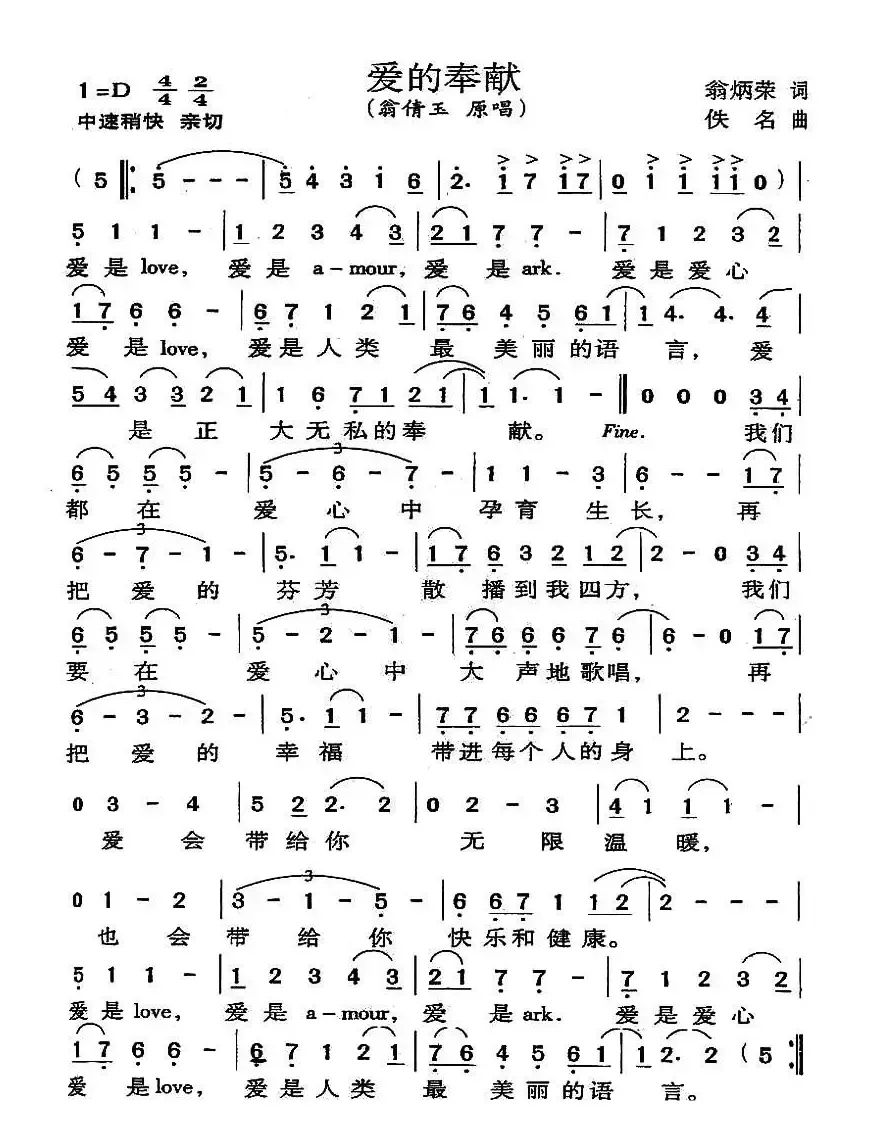 爱的奉献
(翁倩玉 原唱)
1=D 4/4 2/4
中速稍快 亲切
翁炳荣 词
佚 名 曲
(5 |: 5 - - - | 5 4 3 i 6 | 2· i 7 i7 | 0 i i ii0) |
5 1 1 - | 1 2 3 4 3 | 2 1 7 7 - | 7 1 2 3 2 |
爱是love, 爱是 a-mour, 爱 是ark. 爱是爱心
1 7 6 6 - | 6 7 1 2 1 | 7 6 4 5 6 1 | 1 4· 4· 4 |
爱 是love, 爱是人类 最 美丽的语 言, 爱
5 4 3 3 2 1 | 1 6 7 1 2 1 | 1 1· 1 - || 0 0 0 3 4 |
是 正 大无私的奉 献。 Fine. 我们
6 5 5 5 - | 5 - 6 - 7 - | 1 1 - 3 | 6 - - 1 7 |
3
都 在 爱 心 中 孕育 生长, 再
6 - 7 - 1 - | 5· 1 1 - | 1 7 6 3 2 1 2 | 2 - 0 3 4 |
3
把 爱 的 芬芳 散 播到我四方, 我们
6 5 5 5 - | 5 - 2 - 1 - | 7 6 6 6 7 6 | 6 - 0 1 7 |
3
要 在 爱 心 中 大 声地歌唱, 再
6 - 3 - 2 - | 5· 1 1 - | 7 7 6 6 6 7 1 | 2 - - - |
3
把 爱 的 幸福 带进每个人的身 上。
0 3 - 4 | 5 2 2· 2 | 0 2 - 3 | 4 1 1 1 - |
爱 会 带给你 无 限 温 暖,
0 1 - 2 | 3 - 1 - 5 - | 6 6 7 1 1 2 | 2 - - - |
3
也 会 带 给 你 快乐和健康。
5 1 1 - | 1 2 3 4 3 | 2 1 7 7 - | 7 1 2 3 2 |
爱是love, 爱是 a-mour, 爱 是ark. 爱是爱心
1 7 6 6 - | 6 7 1 2 1 | 7 6 4 5 6 1 | 1 2· 2 (5 :|
爱 是love, 爱是人类 最 美丽的语 言。